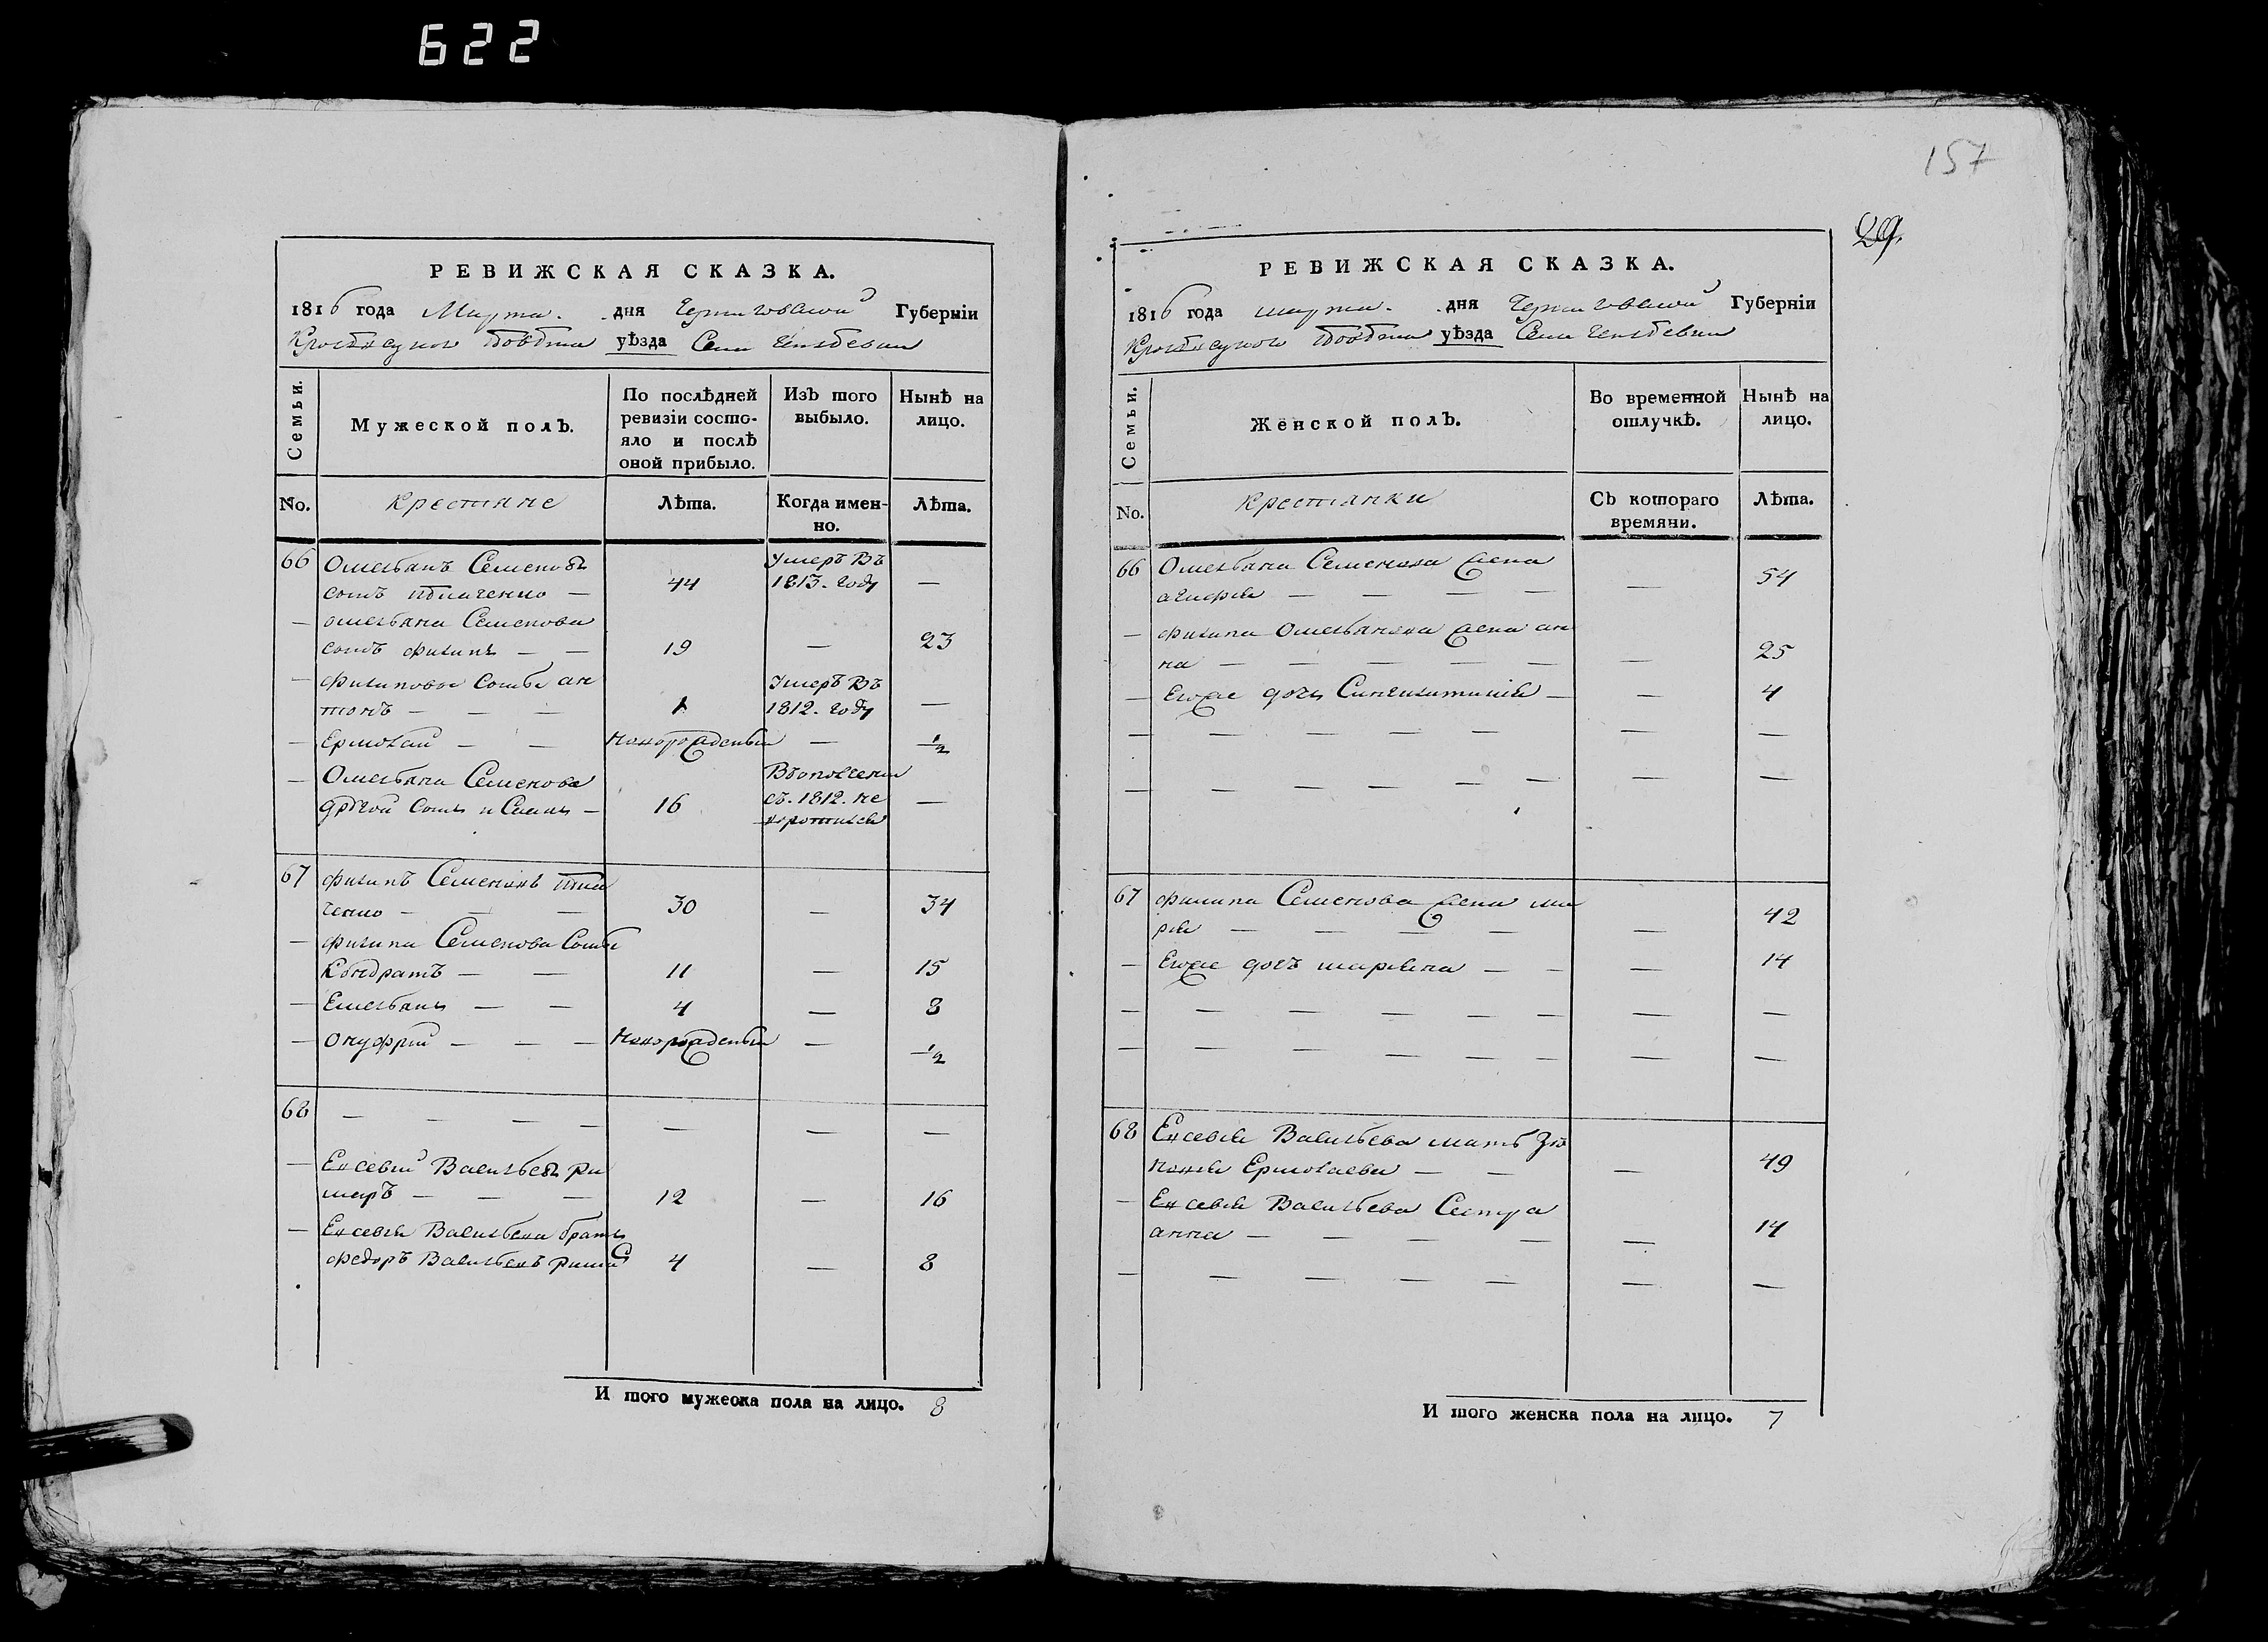 622
157
29.
РЕВИЖСКАЯ СКАЗКА.
1816 года Марта. дня Черниговской Губерніи
уѣзда Села
Семьи.
Мужеской полъ.
По послѣдней ревизіи состо-
яло и послѣ оной прибыло.
Изъ того выбыло.
Нынѣ на лицо.
No.
Крестяне
Лѣта.
Когда имен-
но.
Лѣта.
66 Омельянъ Семеновъ Умеръ Въ
сынъ 44 1813. году —
— Омельяна Семенова
сынъ филипъ — — 19 — 23
— филиповы Сыны ан Умеръ Въ
тонъ — — — 1 1812. году —
— Ермолай — — Новорожденый — ½
— Омельяна Семенова Въ ополчении
другой Сынъ 16 съ. 1812. не —
воротился
67 филипъ Семеновъ
30 — 34
— филипа Семенова Сыны
Кондратъ — — 11 — 15
— Емельянъ — — 4 — 8
— Онуфрий — — — Новорожденый — ½
68 — — — — — — —
— Евсевий Васильевъ
— — — 12 — 16
— Евсевия Васильева братъ
федоръ Васильевъ 4 — 8
И того мужеска пола на лицо. 8
РЕВИЖСКАЯ СКАЗКА.
1816 года марта. дня Черниговской Губерніи
уѣзда Села
Семьи.
Женской полъ.
Во временной отлучкѣ.
Нынѣ на лицо.
No.
Крестянки
Съ котораго времяни.
Лѣта.
66 Омельяна Семенова жена
агафия — — — — — 54
— филипа Омельянова жена ан
на — — — — — — 25
— Егоже дочь — — 4
— — — — — — — —
— — — — — — — —
67 филипа Семенова жена ма
рия — — — — — 42
— Егоже дочь марьяна — — — 14
— — — — — — — —
— — — — — — — —
68 Евсевия Васильева мать
Ермолаева — — — 49
— Евсевия Васильева Сестра
анна — — — — — 14
— — — — — — —
И того женска пола на лицо. 7